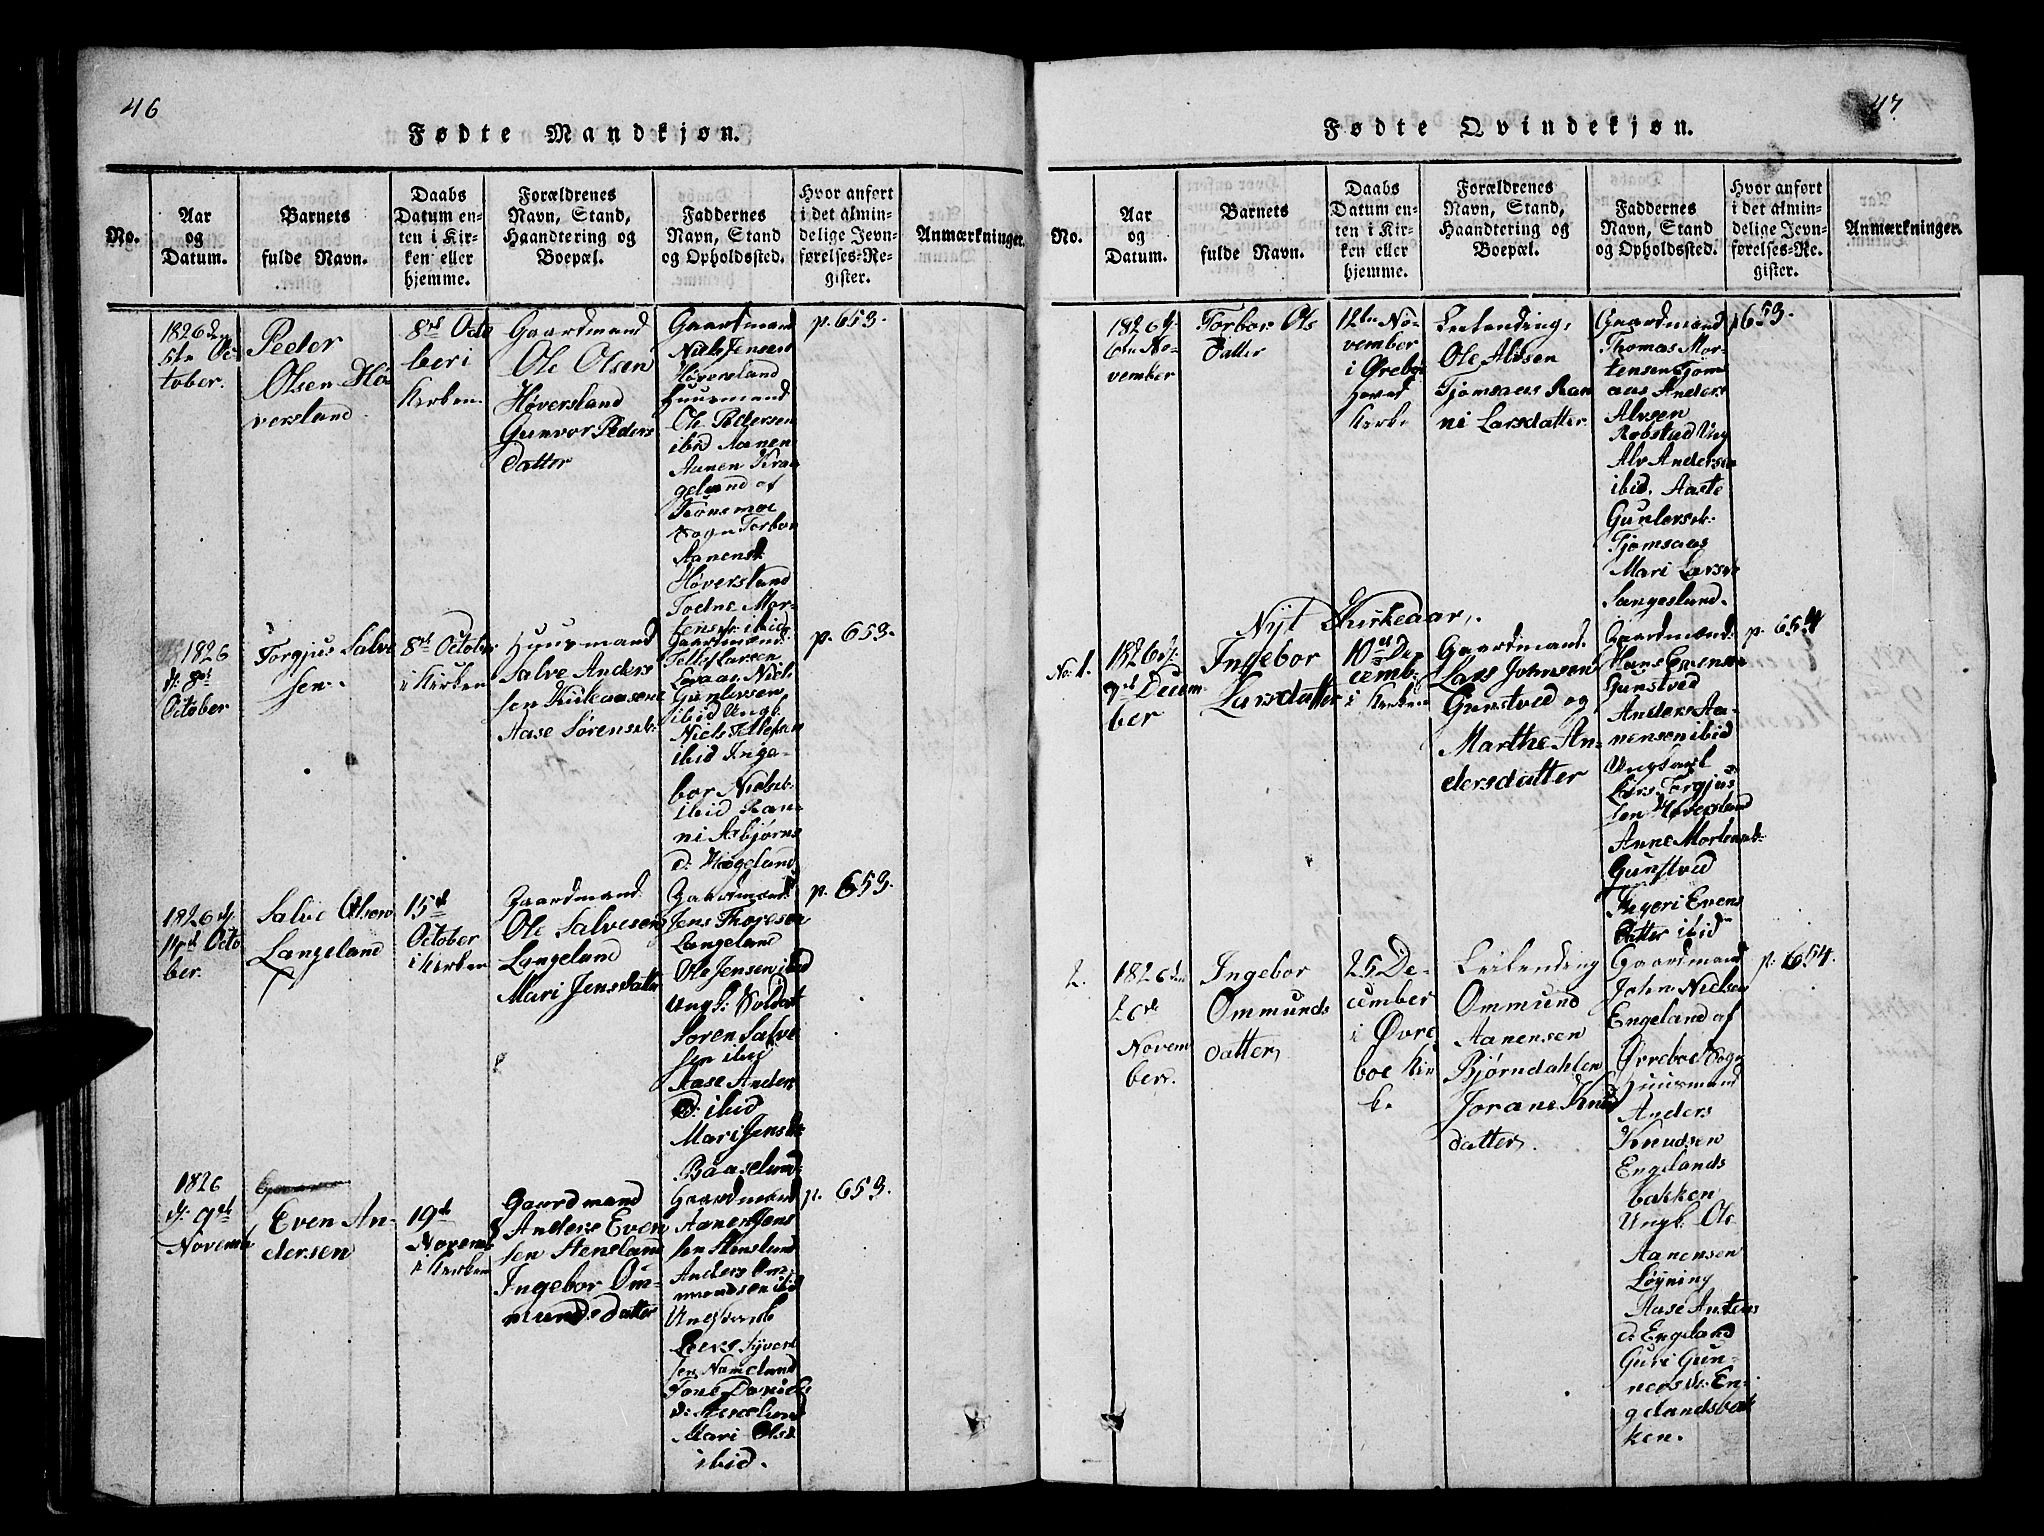 46
Fødte Mandkjøn.
No.
Aar
og
Datum.
Barnets
fulde Navn.
Daabs
Datum en-
ten i Kir-
ken eller
hjemme.
Forældrenes
Navn, Stand,
Haandtering og
Boepæl.
Faddernes
Navn, Stand
og Opholdssted.
Hvor anført
i det almin-
delige Jevn-
førelses-Re-
gister.
Anmærkninger.
1826 den
5te Oc
tober.
Peder
Olsen Hø
versland
8de Octo
ber i
Kirken
Gaardmand
Ole Olsen
Høversland
Gunvor Peders
datter
Gaardmand
Niels Jensen
Høversland
Huusmand
Ole Pedersen
ibid Aanen
Aanen Kraa
geland af
sogn Torbor
Aanensd.
Høversland
Todne Mor-
tensd: ibid
p. 653.
1826
d: 8de
October
Torgjus Salve
sen.
8de October
i Kirken
Huusmand
Salve Anders
sen Kirkeaasene
Aase Sørensd:
Gaardmænd
Tellef Larsen
Lovaas Niels
Gunlersen
ibid Ungk:
Niels Tellefsen
ibid Inge-
bor Nielsd:
ibid Ran-
ni Asbjørns
d: Høgeland
p. 653.
1826 d:
14de Octo
ber.
Salve Olsen
Langeland
15de
October
i Kirken
Gaardmand
Ole Salvesen
Langeland
Mari Jensdatt
Gaardmænd
Jens Thorjesen
Langeland
Ole Jensen ibid
Ungk: Soldat
Søren Salve
sen ibid
Aase Anders
D: ibid
Mari Jensd:
Baaseland
p. 653.
1826
d: 9de
Novem
Even An-
dersen
19de
Novem
i Kirken
Gaardmand
Anders Even
sen Stensland
Ingebor Om-
mundsdatter
Gaardmænd
Aanen Jens
sen Stensland
Anders Om-
mundsen ibid
Ungkarl
Peder Syvert
sen Nameland
Tone Daniels
d: Stensland
Mari Olsd
ibid.
p. 653.
47.
Fødte Qvindekjøn.
No.
Aar
og
Datum.
Barnets
fulde Navn.
Daabs
Datum en-
ten i Kir-
ken eller
hjemme.
Forældrenes
Navn, Stand,
Haandtering og
Boepæl.
Faddernes
Navn, Stand
og Opholdssted.
Hvor anført
i det almin-
delige Jevn-
førelses-Re-
gister.
Anmærkninger.
1826 d:
6te No-
vember
Torbor Ols
datter
12te No-
vember
i Øreboe
Hoved
Kirke
Leilending
Ole Alvsen
Tjomsaas Ran
ni Larsdatter
Gaardmænd
Thomas Mor-
tensen Tjom
aas Anders
Alvsen
Robstad Ung
Alv Andersen
ibid. Aaste
Gunlersd:
Tjomsaas
Mari Larsd
Langeland.
p 653.
Nyt Kirkeaar.
No. 1.
1826 d:
9de Decem-
ber
Ingebor
Larsdatter
10de De
cemb:
i Kirken
Gaardmand
Lars Johnsen
Gunstved og
Marthe An-
dersdatter
Gaardmænd
Hans Evensen
Gunstved
Anders Aa-
nensen ibid
Ungkarl
Lars Torgjus
sen Høversland
Anne Mortensd:
Gunstved
Sigeri Evens
datter ibid
p. 654
2.
1826 den
26de
Novem
ber.
Ingebor
Ommunds
datter
25 De-
cember
i Øvre
boe Kir
ke
Leilending
Ommund
Aanensen
Bjørndahlen
Jorane Knud
datter.
Gaardmand
John Nielsen
Engeland af
Øvreboe Sogn
Huusmand
Anders
Knudsen
Engelands
bakken
Ungk: Ole
Aanensen
Løyning
Aase Anstens
d: Engeland
Guri Gun-
neds d: En-
gelandsbak
ken.
p. 654.